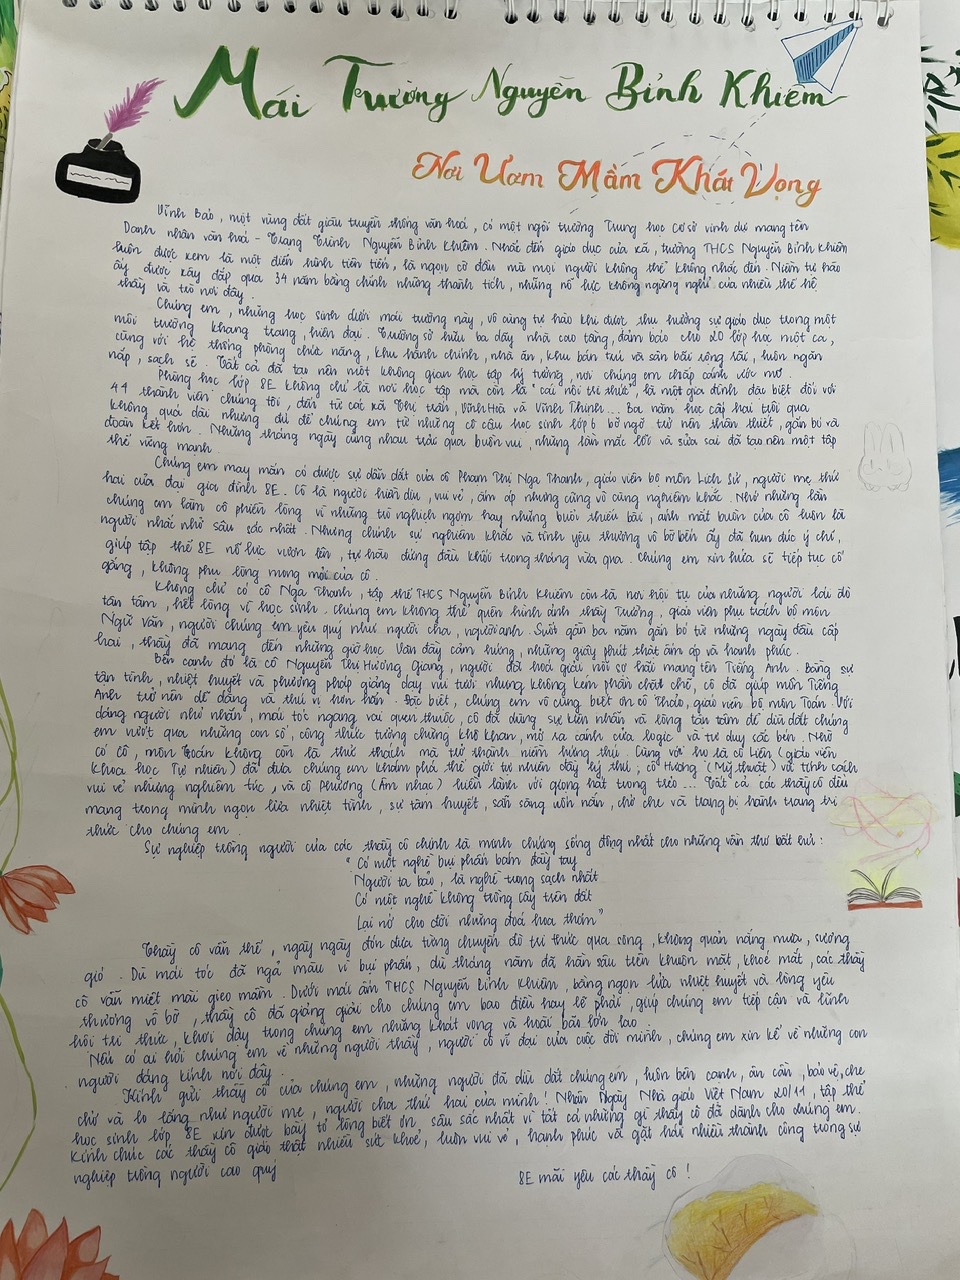 Mái Trường Nguyễn Bỉnh Khiêm
Nơi Ươm Mầm Khát Vọng
Vĩnh Bảo, một vùng đất giàu truyền thống văn hoá, có một ngôi trường Trung học cơ sở vinh dự mang tên
Danh nhân văn hoá - Trạng Trình Nguyễn Bỉnh Khiêm. Nhắc đến giáo dục của xã, trường THCS Nguyễn Bỉnh Khiêm
luôn được xem là một điển hình tiên tiến, là ngọn cờ đầu mà mọi người không thể không nhắc đến. Niềm tự hào
ấy được xây đắp qua 34 năm bằng chính những thành tích, những nỗ lực không ngừng nghỉ của nhiều thế hệ
thầy và trò nơi đây.
Chúng em, những học sinh dưới mái trường này, vô cùng tự hào khi được thụ hưởng sự giáo dục trong một
môi trường khang trang, hiện đại. Trường sở hữu ba dãy nhà cao tầng, đảm bảo cho 20 lớp học một ca,
cùng với hệ thống phòng chức năng, khu hành chính, nhà ăn, khu bán trú và sân bãi rộng rãi, luôn ngăn
nắp, sạch sẽ. Tất cả đã tạo nên một không gian học tập lý tưởng, nơi chúng em chắp cánh ước mơ.
Phòng học lớp 8E không chỉ là nơi học tập mà còn là "cái nôi tri thức", là một gia đình đặc biệt đối với
41 thành viên chúng tôi, đến từ các xã Thị trấn, Vĩnh Hoà và Vĩnh Thịnh... Ba năm học cấp hai tuy qua
không quá dài nhưng đủ để chúng em từ những cô cậu học sinh lớp 6 bỡ ngỡ trở nên thân thiết, gắn bó và
đoàn kết hơn. Những tháng ngày cùng nhau trải qua buồn vui, những lần mắc lỗi và sửa sai đã tạo nên một tập
thể vững mạnh.
Chúng em may mắn có được sự dẫn dắt của cô Phạm Thị Nga Thanh, giáo viên bộ môn Lịch Sử, người mẹ thứ
hai của đại gia đình 8E. Cô là người hiền dịu, vui vẻ, ấm áp nhưng cũng vô cùng nghiêm khắc. Nhớ những lần
chúng em làm cô phiền lòng vì những trò nghịch ngợm hay những buổi thiếu bài, ánh mắt buồn của cô luôn là
người nhắc nhở sâu sắc nhất. Nhưng chính sự nghiêm khắc và tình yêu thương vô bờ bến ấy đã hun đúc ý chí,
giúp tập thể 8E nỗ lực vươn lên, tự hào đứng đầu khối trong tháng vừa qua. Chúng em xin hứa sẽ tiếp tục cố
gắng, không phụ lòng mong mỏi của cô.
Không chỉ có cô Nga Thanh, tập thể THCS Nguyễn Bỉnh Khiêm còn là nơi hội tụ của những người lái đò
tận tâm, hết lòng vì học sinh. Chúng em không thể quên hình ảnh thầy Trường, giáo viên phụ trách bộ môn
Ngữ Văn, người chúng em yêu quý như người cha, người anh. Suốt gần ba năm gắn bó từ những ngày đầu cấp
hai, thầy đã mang đến những giờ học Văn đầy cảm hứng, những giây phút thật ấm áp và hạnh phúc.
Bên cạnh đó là cô Nguyễn Thị Hương Giang, người đã hoá giải nỗi sợ hãi mang tên Tiếng Anh. Bằng sự
tận tình, nhiệt huyết và phương pháp giảng dạy vui tươi nhưng không kém phần chặt chẽ, cô đã giúp môn Tiếng
Anh trở nên dễ dàng và thú vị hơn hẳn. Đặc biệt, chúng em vô cùng biết ơn cô Thảo, giáo viên bộ môn Toán. Với
dáng người nhỏ nhắn, mái tóc ngang vai quen thuộc, cô đã dùng sự kiên nhẫn và lòng tận tâm để dìu dắt chúng
em vượt qua những con số, công thức tưởng chừng khô khan, mở ra cánh cửa logic và tư duy sắc bén. Nhờ
có cô, môn Toán không còn là thử thách mà trở thành niềm hứng thú. Cùng với họ là cô Liên (giáo viên
Khoa học Tự nhiên) đã đưa chúng em khám phá thế giới tự nhiên đầy lý thú; cô Hương (Mỹ thuật) và tính cách
vui vẻ nhưng nghiêm túc, và cô Phương (Âm nhạc) hiền lành với giọng hát trong trẻo... Tất cả các thầy cô đều
mang trong mình ngọn lửa nhiệt tình, sự tâm huyết, sẵn sàng uốn nắn, chở che và trang bị hành trang tri
thức cho chúng em.
Sự nghiệp trồng người của các thầy cô chính là minh chứng sống động nhất cho những vần thơ bất hủ:
"Có một nghề bụi phấn bám đầy tay
Người ta bảo, là nghề trong sạch nhất
Có một nghề không trồng cây trên đất
Lại nở cho đời những đoá hoa thơm"
Thầy cô vẫn thế, ngày ngày đón đưa từng chuyến đò tri thức qua sông, không quản nắng mưa, sương
gió. Dù mái tóc đã ngả màu vì bụi phấn, dù tháng năm đã hằn sâu trên khuôn mặt, khoé mắt, các thầy
cô vẫn miệt mài gieo mầm. Dưới mái ấm THCS Nguyễn Bỉnh Khiêm, bằng ngọn lửa nhiệt huyết và lòng yêu
thương vô bờ, thầy cô đã giảng giải cho chúng em bao điều hay lẽ phải, giúp chúng em tiếp cận và lĩnh
hội tri thức, khơi dậy trong chúng em những khát vọng và hoài bão lớn lao.
Nếu có ai hỏi chúng em về những người thầy, người cô vĩ đại của cuộc đời mình, chúng em xin kể về những con
người đáng kính nơi đây.
Kính gửi thầy cô của chúng em, những người đã dìu dắt chúng em, luôn bên cạnh, ân cần, bảo vệ, che
chở và lo lắng như người mẹ, người cha thứ hai của mình! Nhân Ngày Nhà giáo Việt Nam 20/11, tập thể
học sinh lớp 8E xin được bày tỏ lòng biết ơn sâu sắc nhất vì tất cả những gì thầy cô đã dành cho chúng em.
Kính chúc các thầy cô giáo thật nhiều sức khoẻ, luôn vui vẻ, hạnh phúc và gặt hái nhiều thành công trong sự
nghiệp trồng người cao quý
8E mãi yêu các thầy cô!